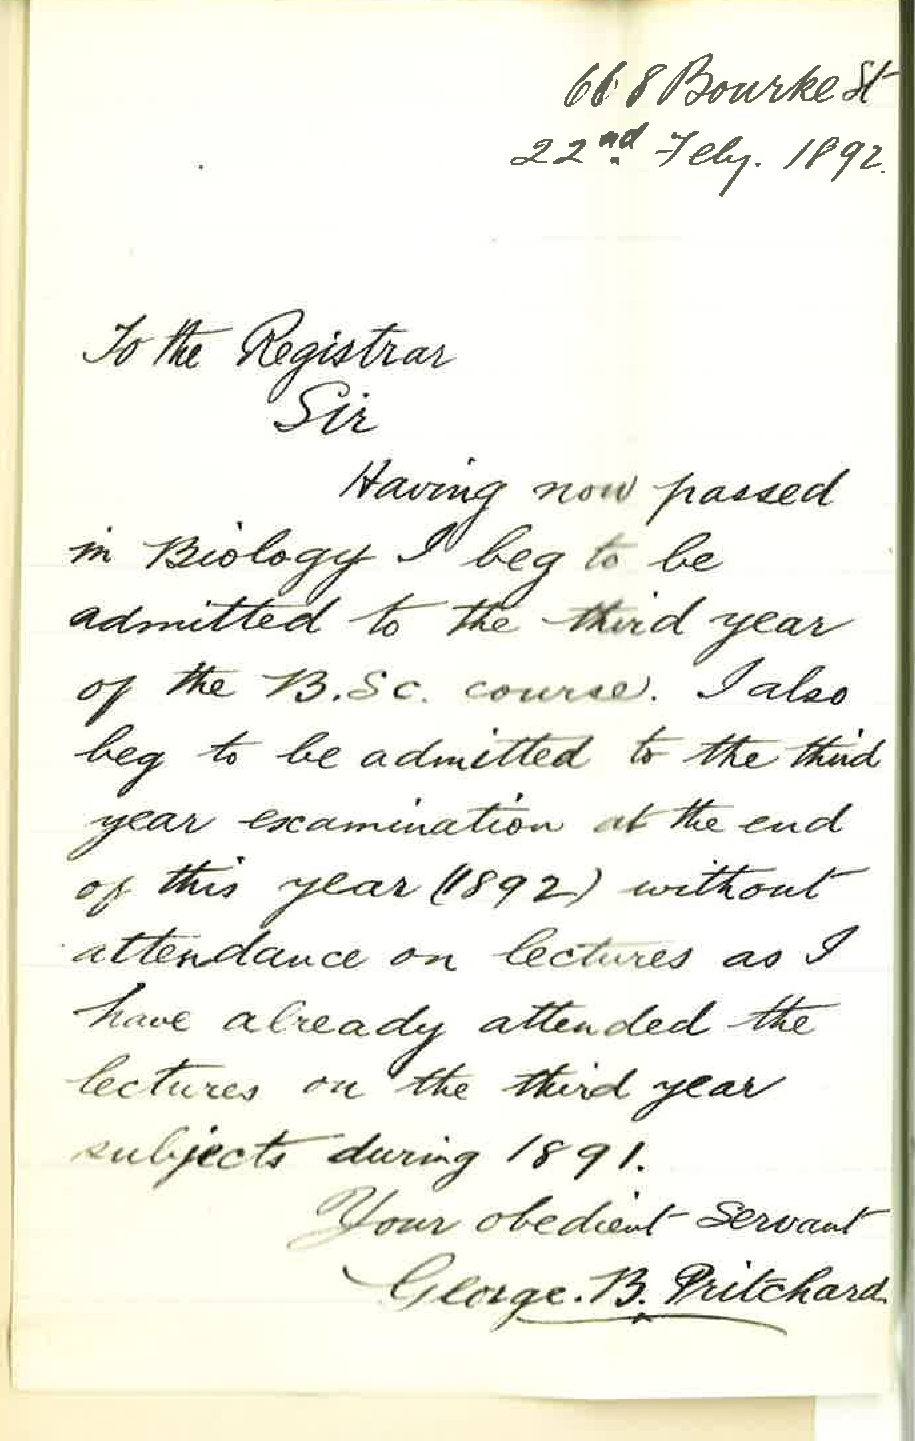 668 Bourke St
22nd Feby. 1892.
To the Registrar
Sir
Having now passed
in Biology I beg to be
admitted to the third year
of the B.Sc. course. I also
beg to be admitted to the third
year examination at the end
of this year (1892) without
attendance on lectures as I
have already attended the
lectures on the third year
subjects during 1891.
Your obedient servant
George. B. Pritchard.